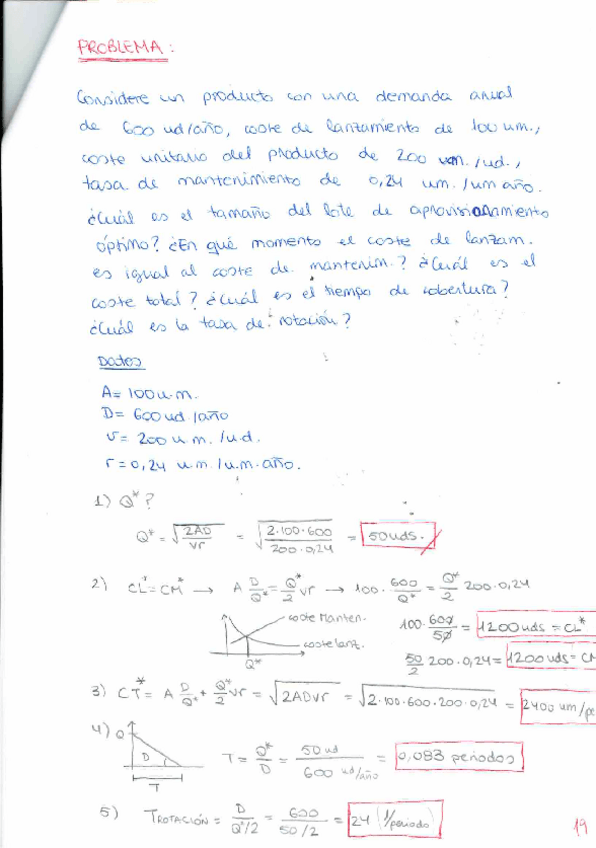 PROBLEMA:
Considere un producto con una demanda anual
de 600 ud/año, coste de lanzamiento de 100 um.,
coste unitario del producto de 200 um./ud.,
tasa de mantenimiento de 0,24 um./um año.
¿Cuál es el tamaño del lote de aprovisionamiento
óptimo? ¿En qué momento el coste de lanzam.
es igual al coste de mantenim.? ¿Cuál es el
coste total? ¿Cuál es el tiempo de cobertura?
¿Cuál es la tasa de rotación?
Datos
A= 100 u.m.
D= 600 ud./año
v= 200 u.m./u.d.
r= 0,24 u.m./u.m. año.
1) Q*?
Q* = √(2AD/vr) = √(2·100·600/200·0,24) = 50 uds.
2) CL* = CM* → A D/Q* = Q*/2 vr → 100 · 600/Q* = Q*/2 200·0,24
coste Manten.
coste lanz.
Q*
100·600/50 = 1200 uds = CL*
50/2 200·0,24 = 1200 uds = CM
3) CT* = A D/Q* + Q*/2 vr = √2ADvr = √2·100·600·200·0,24 = 2400 um/pe
4) Q
D
T
T = Q*/D = 50 ud/600 ud/año = 0,083 periodos
5) TROTACIÓN = D/Q*/2 = 600/50/2 = 24 (1/periodo)
19